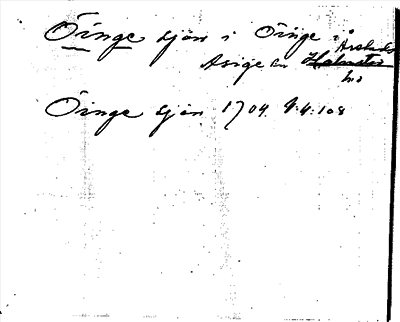 Öinge sjön i Öinge i
Asige sn Årstads
hd
Öinge sjön 1704. 4:4:108